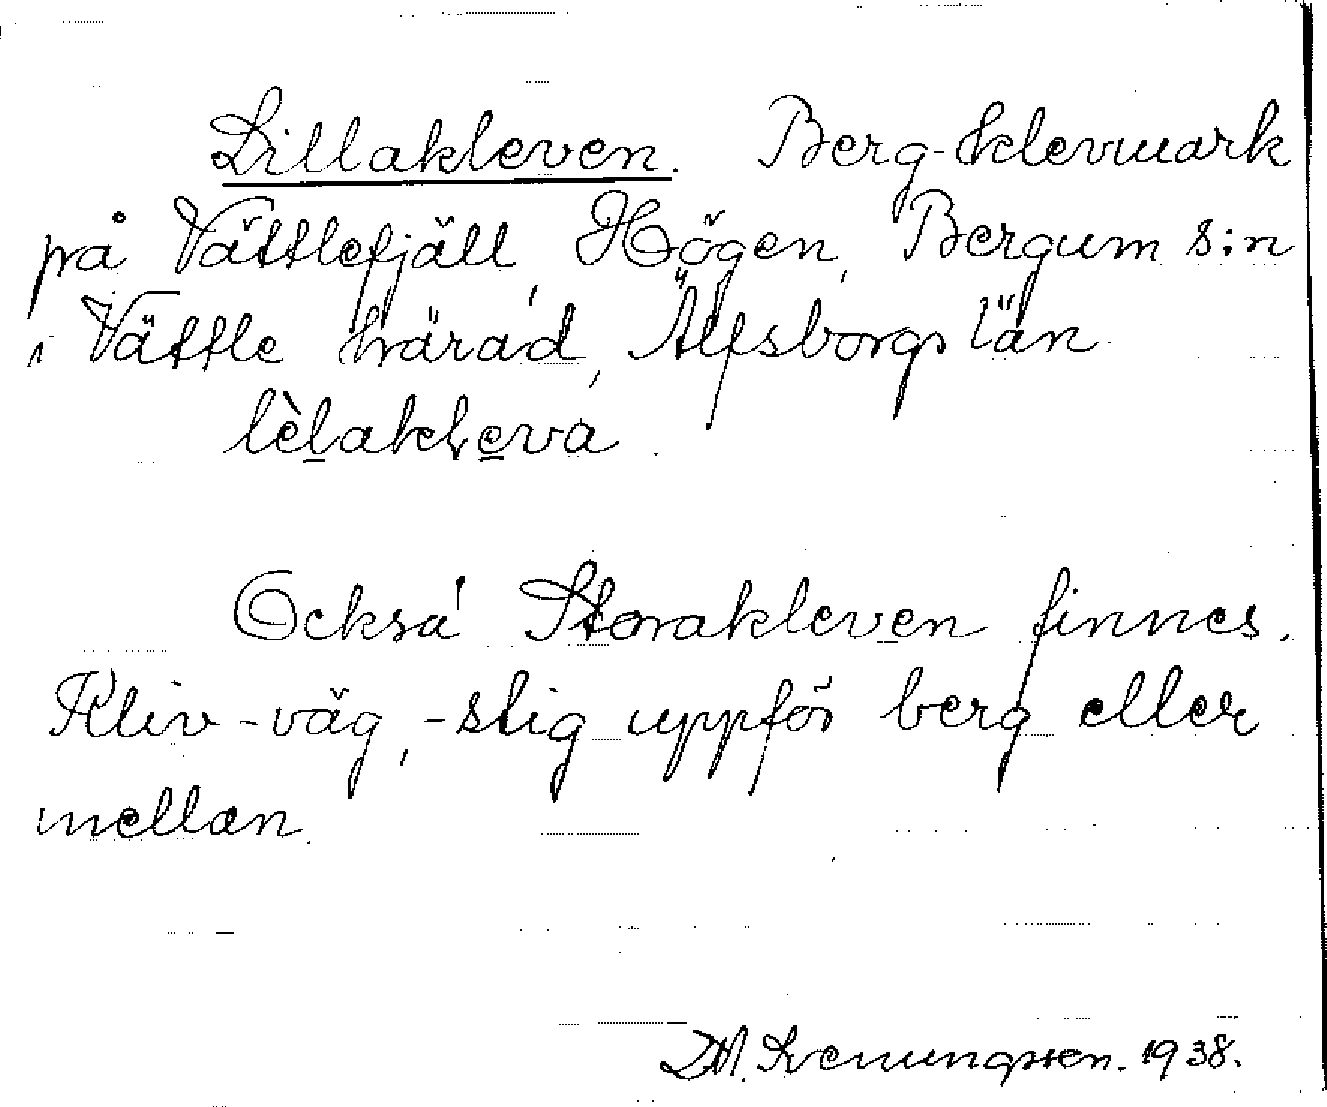 Lillakleven. Berg-klevmark
på Vättlefjäll, Högen, Bergum s:n
i Vättle härad, Älfsborgs län
lèlaklеva.
Också Storakleven finnes.
Kliv-väg, -stig uppför berg eller
mellan.
1938.